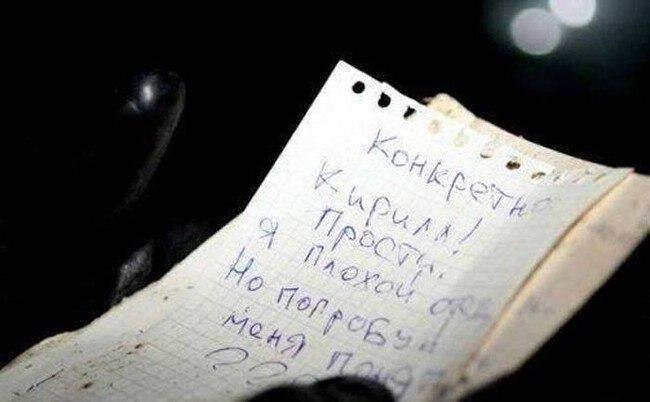 Конкретно
Кирилл!
Прости.
Я плохой
Но попробуй
меня понять
???